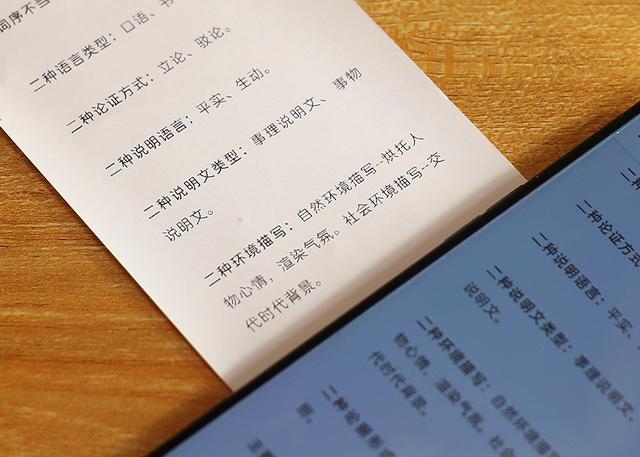 词序不当
二种语言类型：口语、书
二种论证方式：立论、驳论。
二种说明语言：平实、生动。
二种说明文类型：事理说明文、事物
说明文。
二种环境描写：自然环境描写--烘托人
物心情，渲染气氛。社会环境描写--交
代时代背景。
二种论证方式
二种说明语言：平实、
二种说明文类型：事理说明文、
说明文。
二种环境描写：自然环境描
物心情，渲染气氛。社会
代时代背景。
二种论据形